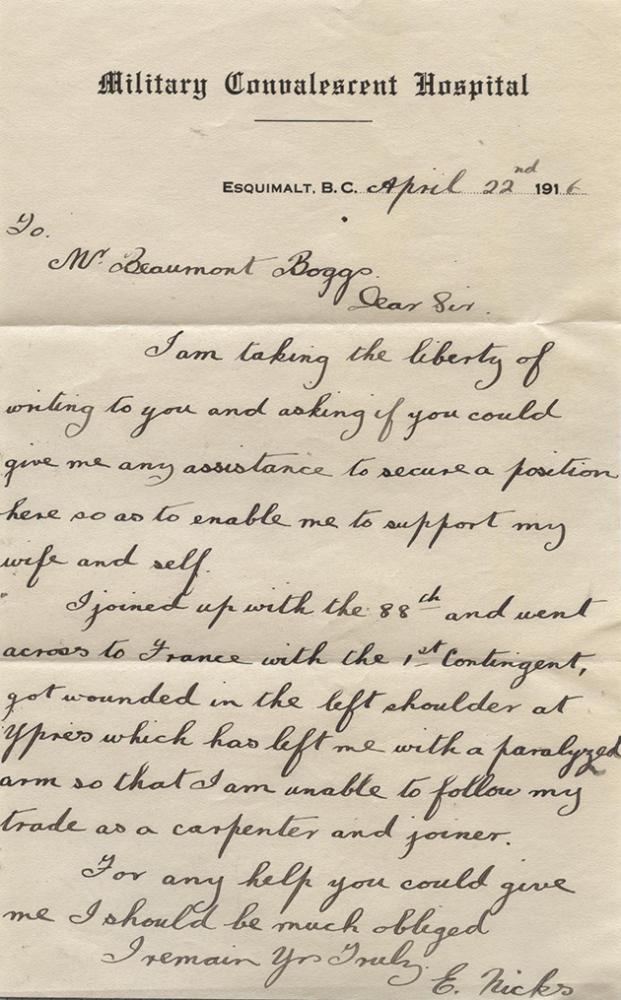 Military Convalescent Hospital
ESQUIMALT, B. C. April 22nd 1916
To.
Mr Beaumont Boggs.
Dear Sir.
I am taking the liberty of
writing to you and asking if you could
give me any assistance to secure a position
here so as to enable me to support my
wife and self.
I joined up with the 88th and went
across to France with the 1st Contingent,
got wounded in the left shoulder at
Ypres which has left me with a paralyzed
arm so that I am unable to follow my
trade as a carpenter and joiner.
For any help you could give
me I should be much obliged
I remain Yrs Truly
E. Nicks